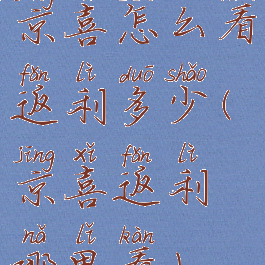 京喜怎么看
fǎn lì duō shǎo
返利多少(
jīng xǐ fǎn lì
京喜返利
nǎ lǐ kàn
哪里看)